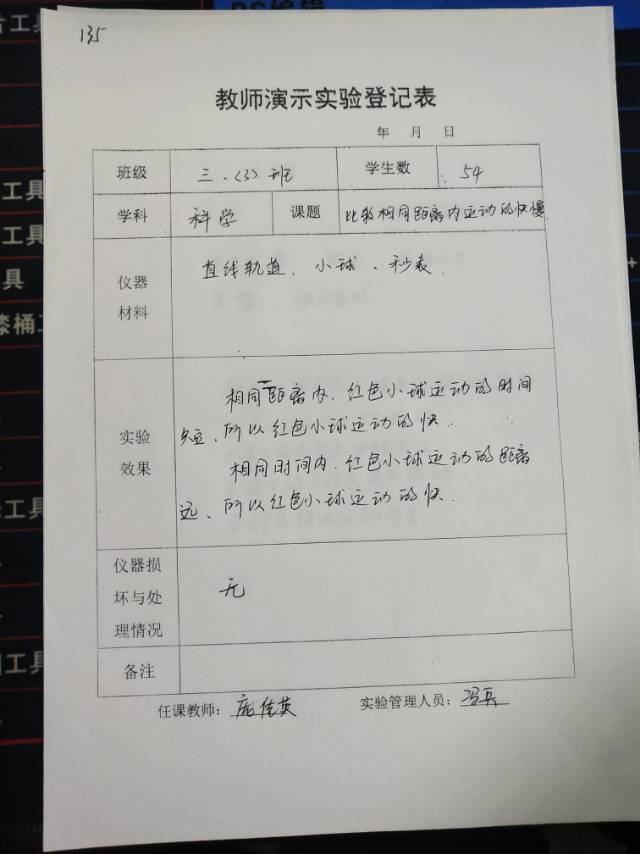 135
教师演示实验登记表
年 月 日
班级 三.(3)班 学生数 54
学科 科学 课题 比较相同距离内运动的快慢
仪器 材料 直线轨道、小球、秒表.
实验 效果
相同距离内.红色小球运动的时间
短.所以红色小球运动的快.
相同时间内.红色小球运动的距离
远、所以红色小球运动的快.
仪器损 坏与处 理情况 无
备注
任课教师: 实验管理人员: 冯兵
工具
工具
工具
具
漆桶工
工具
工具